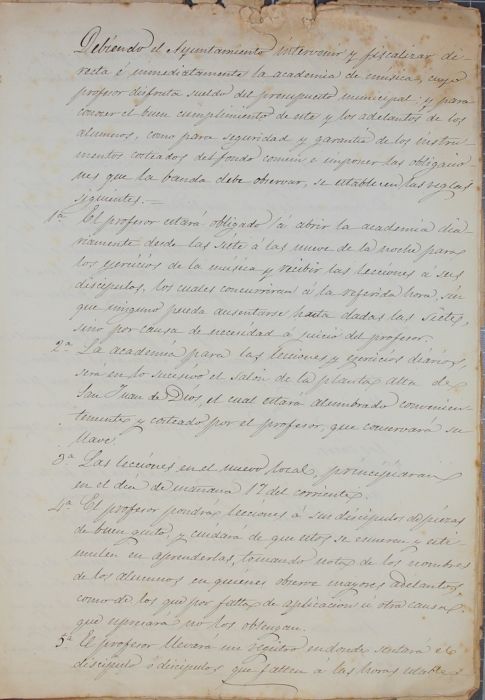 Debiendo el Ayuntamiento intervenir y fiscalizar di-
recta é inmediatamente la academia de musica, cuyo
profesor disfruta sueldo del presupuesto municipal; y para
conocer el buen cumplimiento de este y los adelantos de los
alumnos, como para seguridad y garantia de los instru-
mentos costeados del fondo comun é imponer las obligacio-
nes que la banda debe observar, se establecen las reglas
siguientes.=
1ª El profesor estará obligado á abrir la academia dia-
riamente desde las siete á las nueve de la noche para
los ejercicios de la música y recibir las lecciones a sus
discípulos, los cuales concurriran á la referida hora, sin
que ninguno pueda ausentarse hasta dadas las sietes,
sino por causa de necesidad a juicio del profesor.
2ª La academia para las lecciones y ejercicios diarios,
será en lo sucesivo el salon de la planta alta de
San Juan de Dios, el cual estará alumbrado convenien-
temente y costeado por el profesor, que conservará su
llave.
3ª Las lecciones en el nuevo local, principiaran
en el dia de mañana 17 del corriente.
4ª El profesor pondrá lecciones á sus discipulos de piezas
de buen gusto, y cuidara de que estos se esmeren y esti-
mulen en aprenderlas, tomando nota de los nombres
de los alumnos en quienes observe mayores adelantos,
como de los que por falta de aplicacion ú otra causa
que espresara no los obtengan.
5ª El profesor llevará un registro en donde sentará el
discipulo ó discipulos que falten á las horas estable